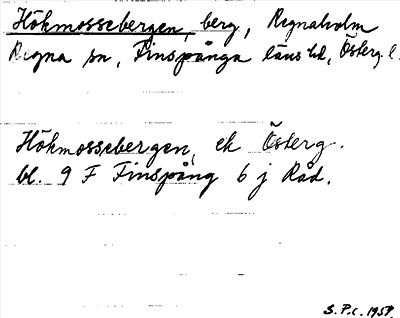 Hökmossebergen, berg, Regnaholm
Regna sn, Finspånga läns hd, Österg. l.
Hökmossebergen, ek Österg.
bl. 9 F Finspång 6 j Råd.
S.P.c. 1958.